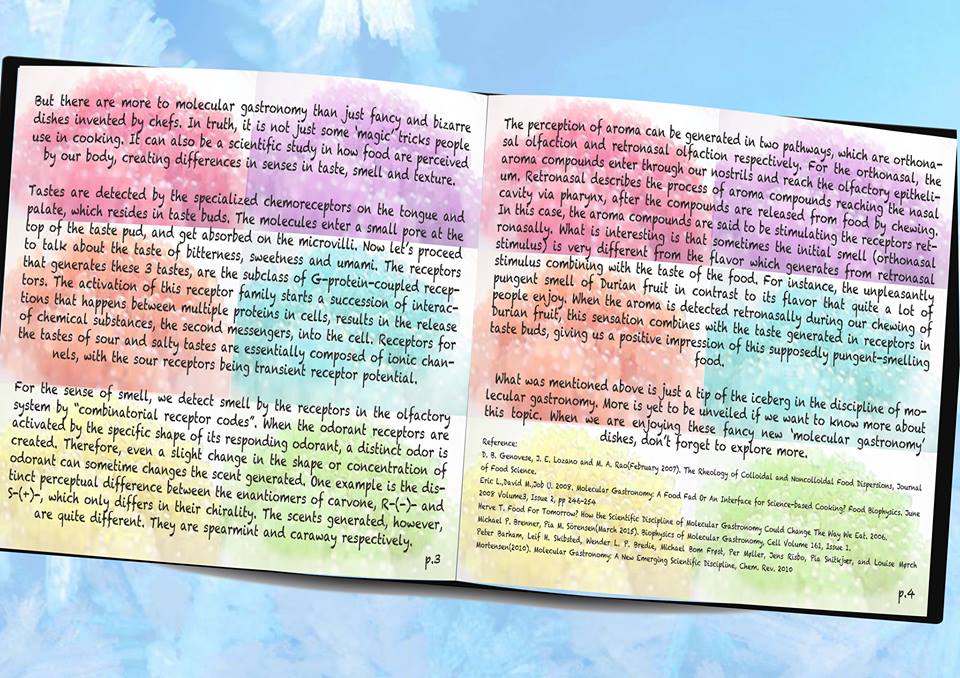 But there are more to molecular gastronomy than just fancy and bizarre
dishes invented by chefs. In truth, it is not just some 'magic' tricks people
use in cooking. It can also be a scientific study in how food are perceived
by our body, creating differences in senses in taste, smell and texture.
Tastes are detected by the specialized chemoreceptors on the tongue and
palate, which resides in taste buds. The molecules enter a small pore at the
top of the taste pud, and get absorbed on the microvilli. Now let's proceed
to talk about the taste of bitterness, sweetness and umami. The receptors
that generates these 3 tastes, are the subclass of G-protein-coupled recep-
tors. The activation of this receptor family starts a succession of interac-
tions that happens between multiple proteins in cells, results in the release
of chemical substances, the second messengers, into the cell. Receptors for
the tastes of sour and salty tastes are essentially composed of ionic chan-
nels, with the sour receptors being transient receptor potential.
For the sense of smell, we detect smell by the receptors in the olfactory
system by "combinatorial receptor codes". When the odorant receptors are
activated by the specific shape of its responding odorant, a distinct odor is
created. Therefore, even a slight change in the shape or concentration of
odorant can sometime changes the scent generated. One example is the dis-
tinct perceptual difference between the enantiomers of carvone, R-(-)- and
S-(+)-, which only differs in their chirality. The scents generated, however,
are quite different. They are spearmint and caraway respectively.
p.3
The perception of aroma can be generated in two pathways, which are orthona-
sal olfaction and retronasal olfaction respectively. For the orthonasal, the
aroma compounds enter through our nostrils and reach the olfactory epitheli-
um. Retronasal describes the process of aroma compounds reaching the nasal
cavity via pharynx, after the compounds are released from food by chewing.
In this case, the aroma compounds are said to be stimulating the receptors ret-
ronasally. What is interesting is that sometimes the initial smell (orthonasal
stimulus) is very different from the flavor which generates from retronasal
stimulus combining with the taste of the food. For instance, the unpleasantly
pungent smell of Durian fruit in contrast to its flavor that quite a lot of
people enjoy. When the aroma is detected retronasally during our chewing of
Durian fruit, this sensation combines with the taste generated in receptors in
taste buds, giving us a positive impression of this supposedly pungent-smelling
food.
What was mentioned above is just a tip of the iceberg in the discipline of mo-
lecular gastronomy. More is yet to be unveiled if we want to know more about
this topic. When we are enjoying these fancy new 'molecular gastronomy'
dishes, don't forget to explore more.
Reference:
D. B. Genovese, J. E. Lozano and M. A. Rao(February 2007). The Rheology of Colloidal and Noncolloidal Food Dispersions, Journal
of Food Science.
Eric L.,David M.,Job U. 2008. Molecular Gastronomy: A Food Fad Or An Interface for Science-based Cooking? Food Biophysics. June
2008 Volume3, Issue 2, pp 246-254
Herve T. Food For Tomorrow? How the Scientific Discipline of Molecular Gastronomy Could Change The Way We Eat. 2006.
Michael P. Brenner, Pia M. Sörensen(March 2015). Biophysics of Molecular Gastronomy, Cell Volume 161, Issue 1.
Peter Barham, Leif H. Skibsted, Wender L. P. Bredie, Michael Bom Frøst, Per Møller, Jens Risbo, Pia Snitkjær, and Louise Mørch
Mortensen(2010). Molecular Gastronomy: A New Emerging Scientific Discipline, Chem. Rev. 2010
p.4